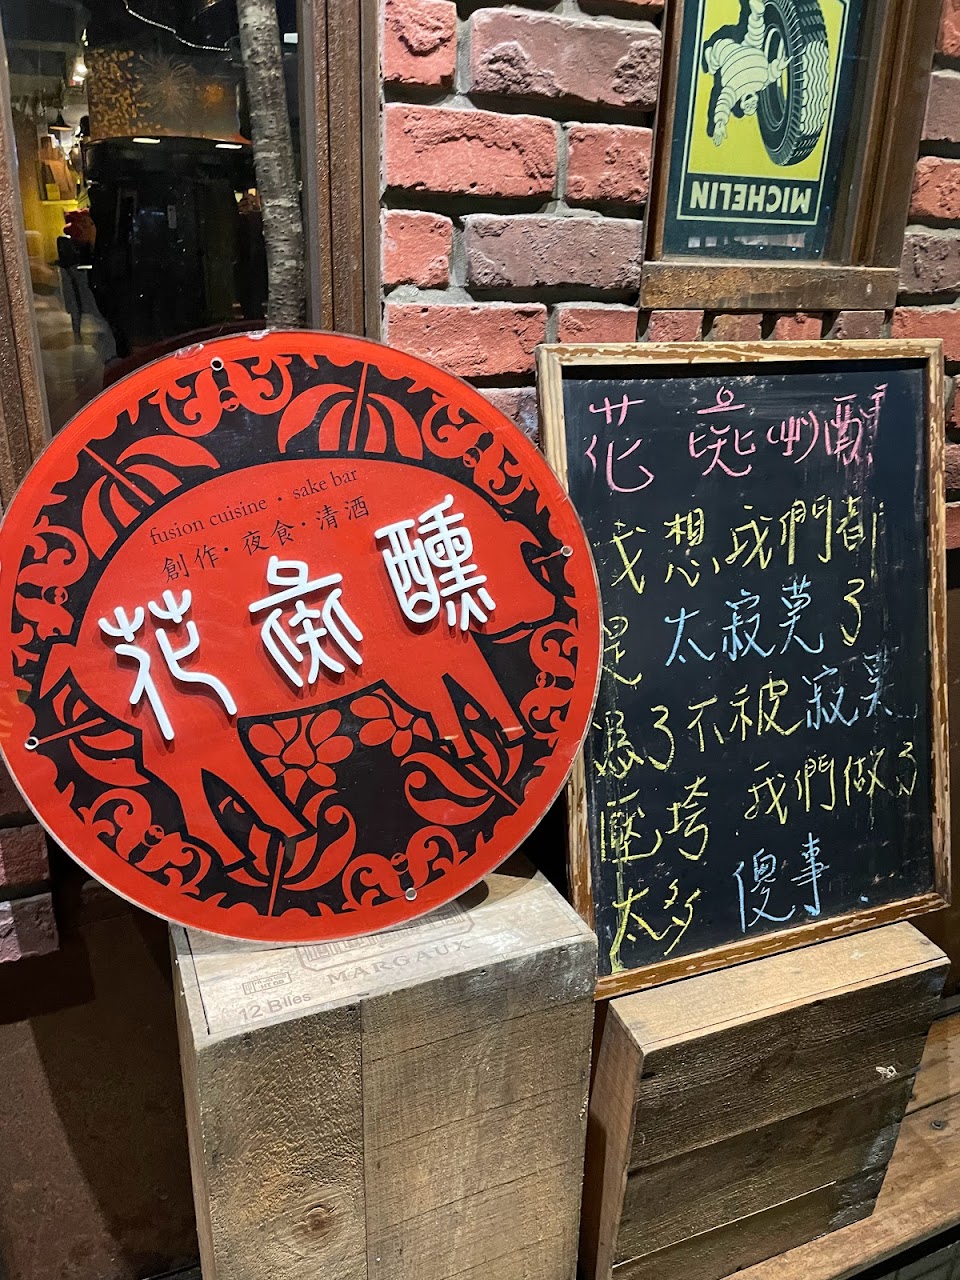 MICHELIN
fusion cuisine · sake bar
創作·夜食·清酒
花夜醺
MARGAUX
12 Blles
我想我們都
是太寂寞了
為了不被寂寞
壓垮 我們做了
太多 傻事.